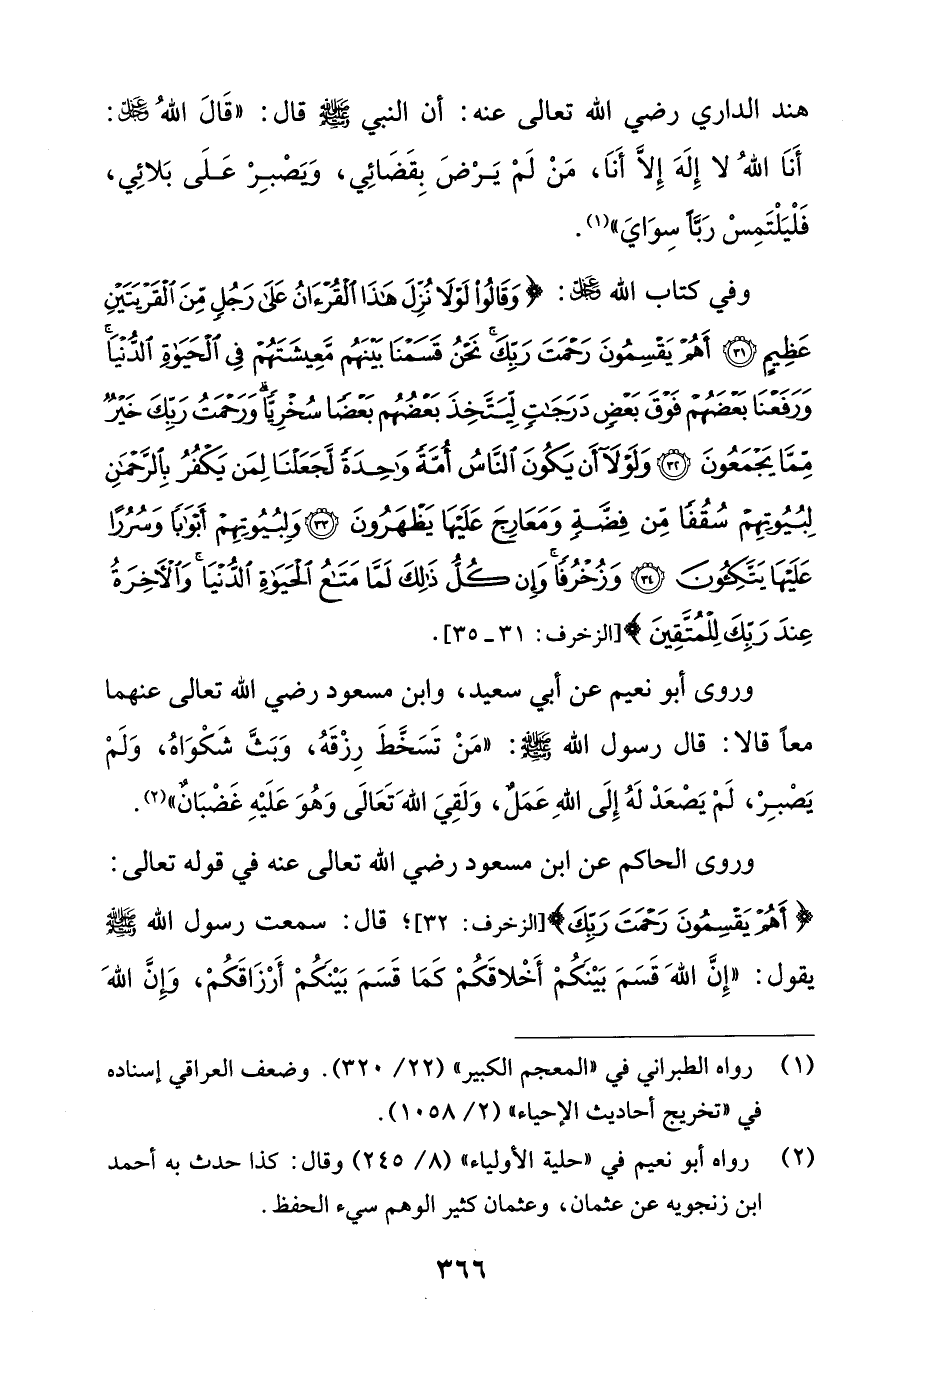 هند الداري رضي الله تعالى عنه: أن النبي ﷺ قال: «قَالَ اللهُ ﷻ:
أَنَا اللهُ لا إِلَهَ إِلاَّ أَنَا، مَنْ لَمْ يَرْضَ بِقَضَائِي، وَيَصْبِرْ عَلَى بَلائِي،
فَلْيَلْتَمِسْ رَبَّاً سِوَايَ»(١).
وفي كتاب الله ﷻ: ﴿وَقَالُوا۟ لَوْلَا نُزِّلَ هَٰذَا ٱلْقُرْءَانُ عَلَىٰ رَجُلٍ مِّنَ ٱلْقَرْيَتَيْنِ
عَظِيمٍ ٣١ أَهُمْ يَقْسِمُونَ رَحْمَتَ رَبِّكَ ۚ نَحْنُ قَسَمْنَا بَيْنَهُم مَّعِيشَتَهُمْ فِى ٱلْحَيَوٰةِ ٱلدُّنْيَا ۚ
وَرَفَعْنَا بَعْضَهُمْ فَوْقَ بَعْضٍ دَرَجَٰتٍ لِّيَتَّخِذَ بَعْضُهُم بَعْضًا سُخْرِيًّا ۗ وَرَحْمَتُ رَبِّكَ خَيْرٌ
مِّمَّا يَجْمَعُونَ ٣٢ وَلَوْلَآ أَن يَكُونَ ٱلنَّاسُ أُمَّةً وَٰحِدَةً لَّجَعَلْنَا لِمَن يَكْفُرُ بِٱلرَّحْمَٰنِ
لِبُيُوتِهِمْ سُقُفًا مِّن فِضَّةٍ وَمَعَارِجَ عَلَيْهَا يَظْهَرُونَ ٣٣ وَلِبُيُوتِهِمْ أَبْوَٰبًا وَسُرُرًا
عَلَيْهَا يَتَّكِـُٔونَ ٣٤ وَزُخْرُفًا ۚ وَإِن كُلُّ ذَٰلِكَ لَمَّا مَتَٰعُ ٱلْحَيَوٰةِ ٱلدُّنْيَا ۚ وَٱلْآخِرَةُ
عِندَ رَبِّكَ لِلْمُتَّقِينَ﴾ [الزخرف: ٣١ ـ ٣٥].
وروى أبو نعيم عن أبي سعيد، وابن مسعود رضي الله تعالى عنهما
معاً قالا: قال رسول الله ﷺ: «مَنْ تَسَخَّطَ رِزْقَهُ، وَبَثَّ شَكْوَاهُ، وَلَمْ
يَصْبِرْ، لَمْ يَصْعَدْ لَهُ إِلَى اللهِ عَمَلٌ، وَلَقِيَ اللهَ تَعَالَى وَهُوَ عَلَيْهِ غَضْبَانٌ»(٢).
وروى الحاكم عن ابن مسعود رضي الله تعالى عنه في قوله تعالى:
﴿أَهُمْ يَقْسِمُونَ رَحْمَتَ رَبِّكَ﴾ [الزخرف: ٣٢]؛ قال: سمعت رسول الله ﷺ
يقول: «إِنَّ اللهَ قَسَمَ بَيْنَكُمْ أَخْلاقَكُمْ كَمَا قَسَمَ بَيْنَكُمْ أَرْزَاقَكُمْ، وَإِنَّ اللهَ
(١) رواه الطبراني في «المعجم الكبير» (٢٢/ ٣٢٠). وضعف العراقي إسناده
في «تخريج أحاديث الإحياء» (٢/ ١٠٥٨).
(٢) رواه أبو نعيم في «حلية الأولياء» (٨/ ٢٤٥) وقال: كذا حدث به أحمد
ابن زنجويه عن عثمان، وعثمان كثير الوهم سيء الحفظ.
٣٦٦